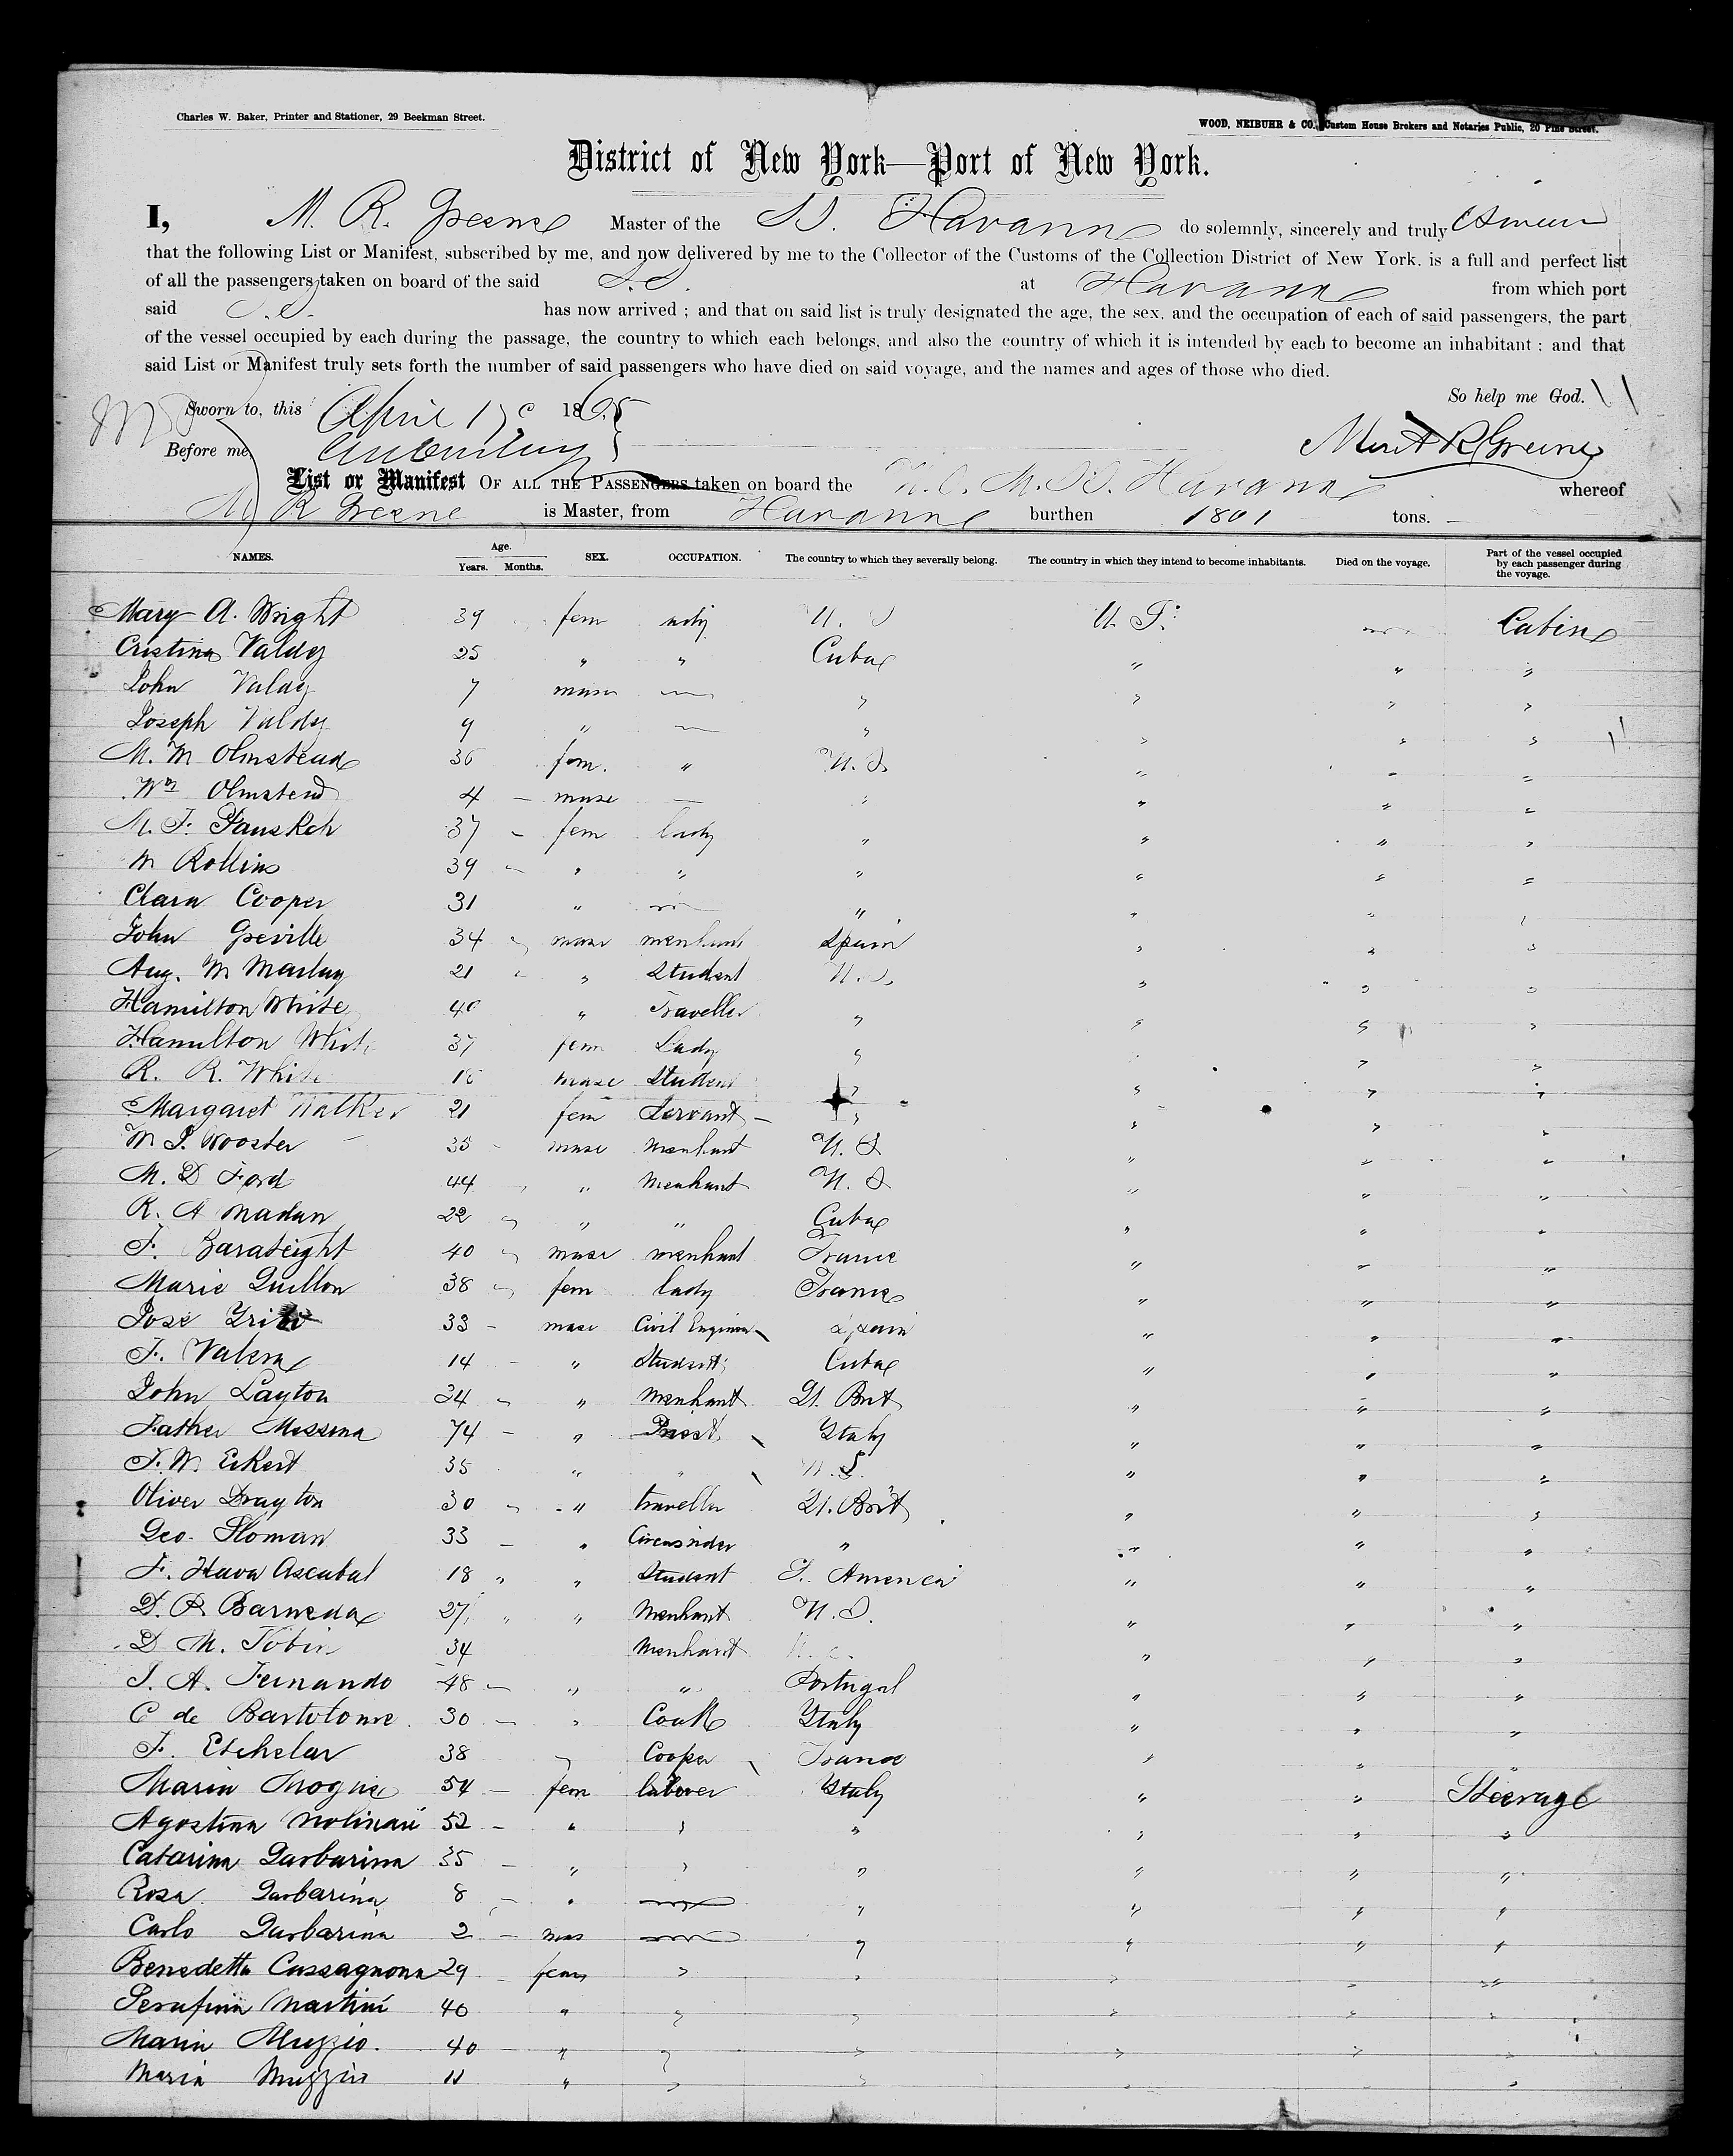 Charles W. Baker, Printer and Stationer, 29 Beekman Street.
WOOD, NEIBUHR & CO., Custom House Brokers and Notaries Public, 20 Pine Street.
District of New York—Port of New York.
I, M. R. Greene Master of the SS. Havanna do solemnly, sincerely and truly swear
that the following List or Manifest, subscribed by me, and now delivered by me to the Collector of the Customs of the Collection District of New York, is a full and perfect list
of all the passengers taken on board of the said S.S. at Havana from which port
said S.S. has now arrived ; and that on said list is truly designated the age, the sex, and the occupation of each of said passengers, the part
of the vessel occupied by each during the passage, the country to which each belongs, and also the country of which it is intended by each to become an inhabitant ; and that
said List or Manifest truly sets forth the number of said passengers who have died on said voyage, and the names and ages of those who died.
So help me God.
Sworn to, this April 186
Before me,
List or Manifest OF ALL THE PASSENGERS taken on board the Havana whereof
M R Greene is Master, from Havanna burthen 1801 tons.
NAMES. Age. Years. Months. SEX. OCCUPATION. The country to which they severally belong. The country in which they intend to become inhabitants. Died on the voyage. Part of the vessel occupied by each passenger during the voyage.
Mary A. Wright 39 fem U. S U. S. Cabin
Cristina Valdez 25 " " Cuba " " "
John Valdez 7 masc — " " " "
Joseph Valdez 9 " — " " " "
M. M Olmstead 36 fem. " U. S. " " "
Wm Olmstead 4 — masc — " " " "
M. F. 37 — fem lady " " " "
M Rollins 39 " " " " " "
Clara Cooper 31 " — " " " "
John Greville 34 masc merchant Spain " " "
Aug. M 21 " Student U. S. " " "
Hamilton White 40 " Traveller " " " "
Hamilton White 37 fem Lady " " " "
R. R. White 18 masc Student " " " "
Margaret Walker 21 fem Servant — " " " "
M J. Wooster 35 masc merchant U. S " " "
M. D Ford 44 " Merchant U. S " " "
R. A Madan 22 " " Cuba " " "
F. 40 masc merchant France " " "
Marie 38 fem lady France " " "
José 33 — masc Civil Engineer Spain " " "
F. 14 — " Student Cuba " " "
John Layton 34 " Merchant Gt. Brit " " "
Father Messena 74 — " Priest Italy " " "
F. W. Eckert 35 " " U. S. " " "
Oliver Drayton 30 " traveller Gt. Brit " " "
Geo. Sloman 33 — " Circus rider " " " "
F. 18 " " Student S. America " " "
D. R 27 " " Merchant U. S. " " "
D M. Tobin 34 Merchant " " "
J. A. Fernando 48 — " " Portugal " " "
C de Bartolome 30 — " Cook Italy " " "
F. Etchelar 38 " Cooper France " " "
Maria 54 — fem laborer Italy " " Steerage
Agostina Molinari 52 — " " " " " "
Catarina Garbarina 35 — " " " " " "
Rosa Garbarina 8 — " — " " " "
Carlo Garbarina 2 — mas — " " " "
Benedetta Cassagnona 29 fem " " " " "
Serafina Martini 40 " " " " " "
Maria Muzzio. 40 " " " " " "
Maria Muzzio 11 " " " " " "